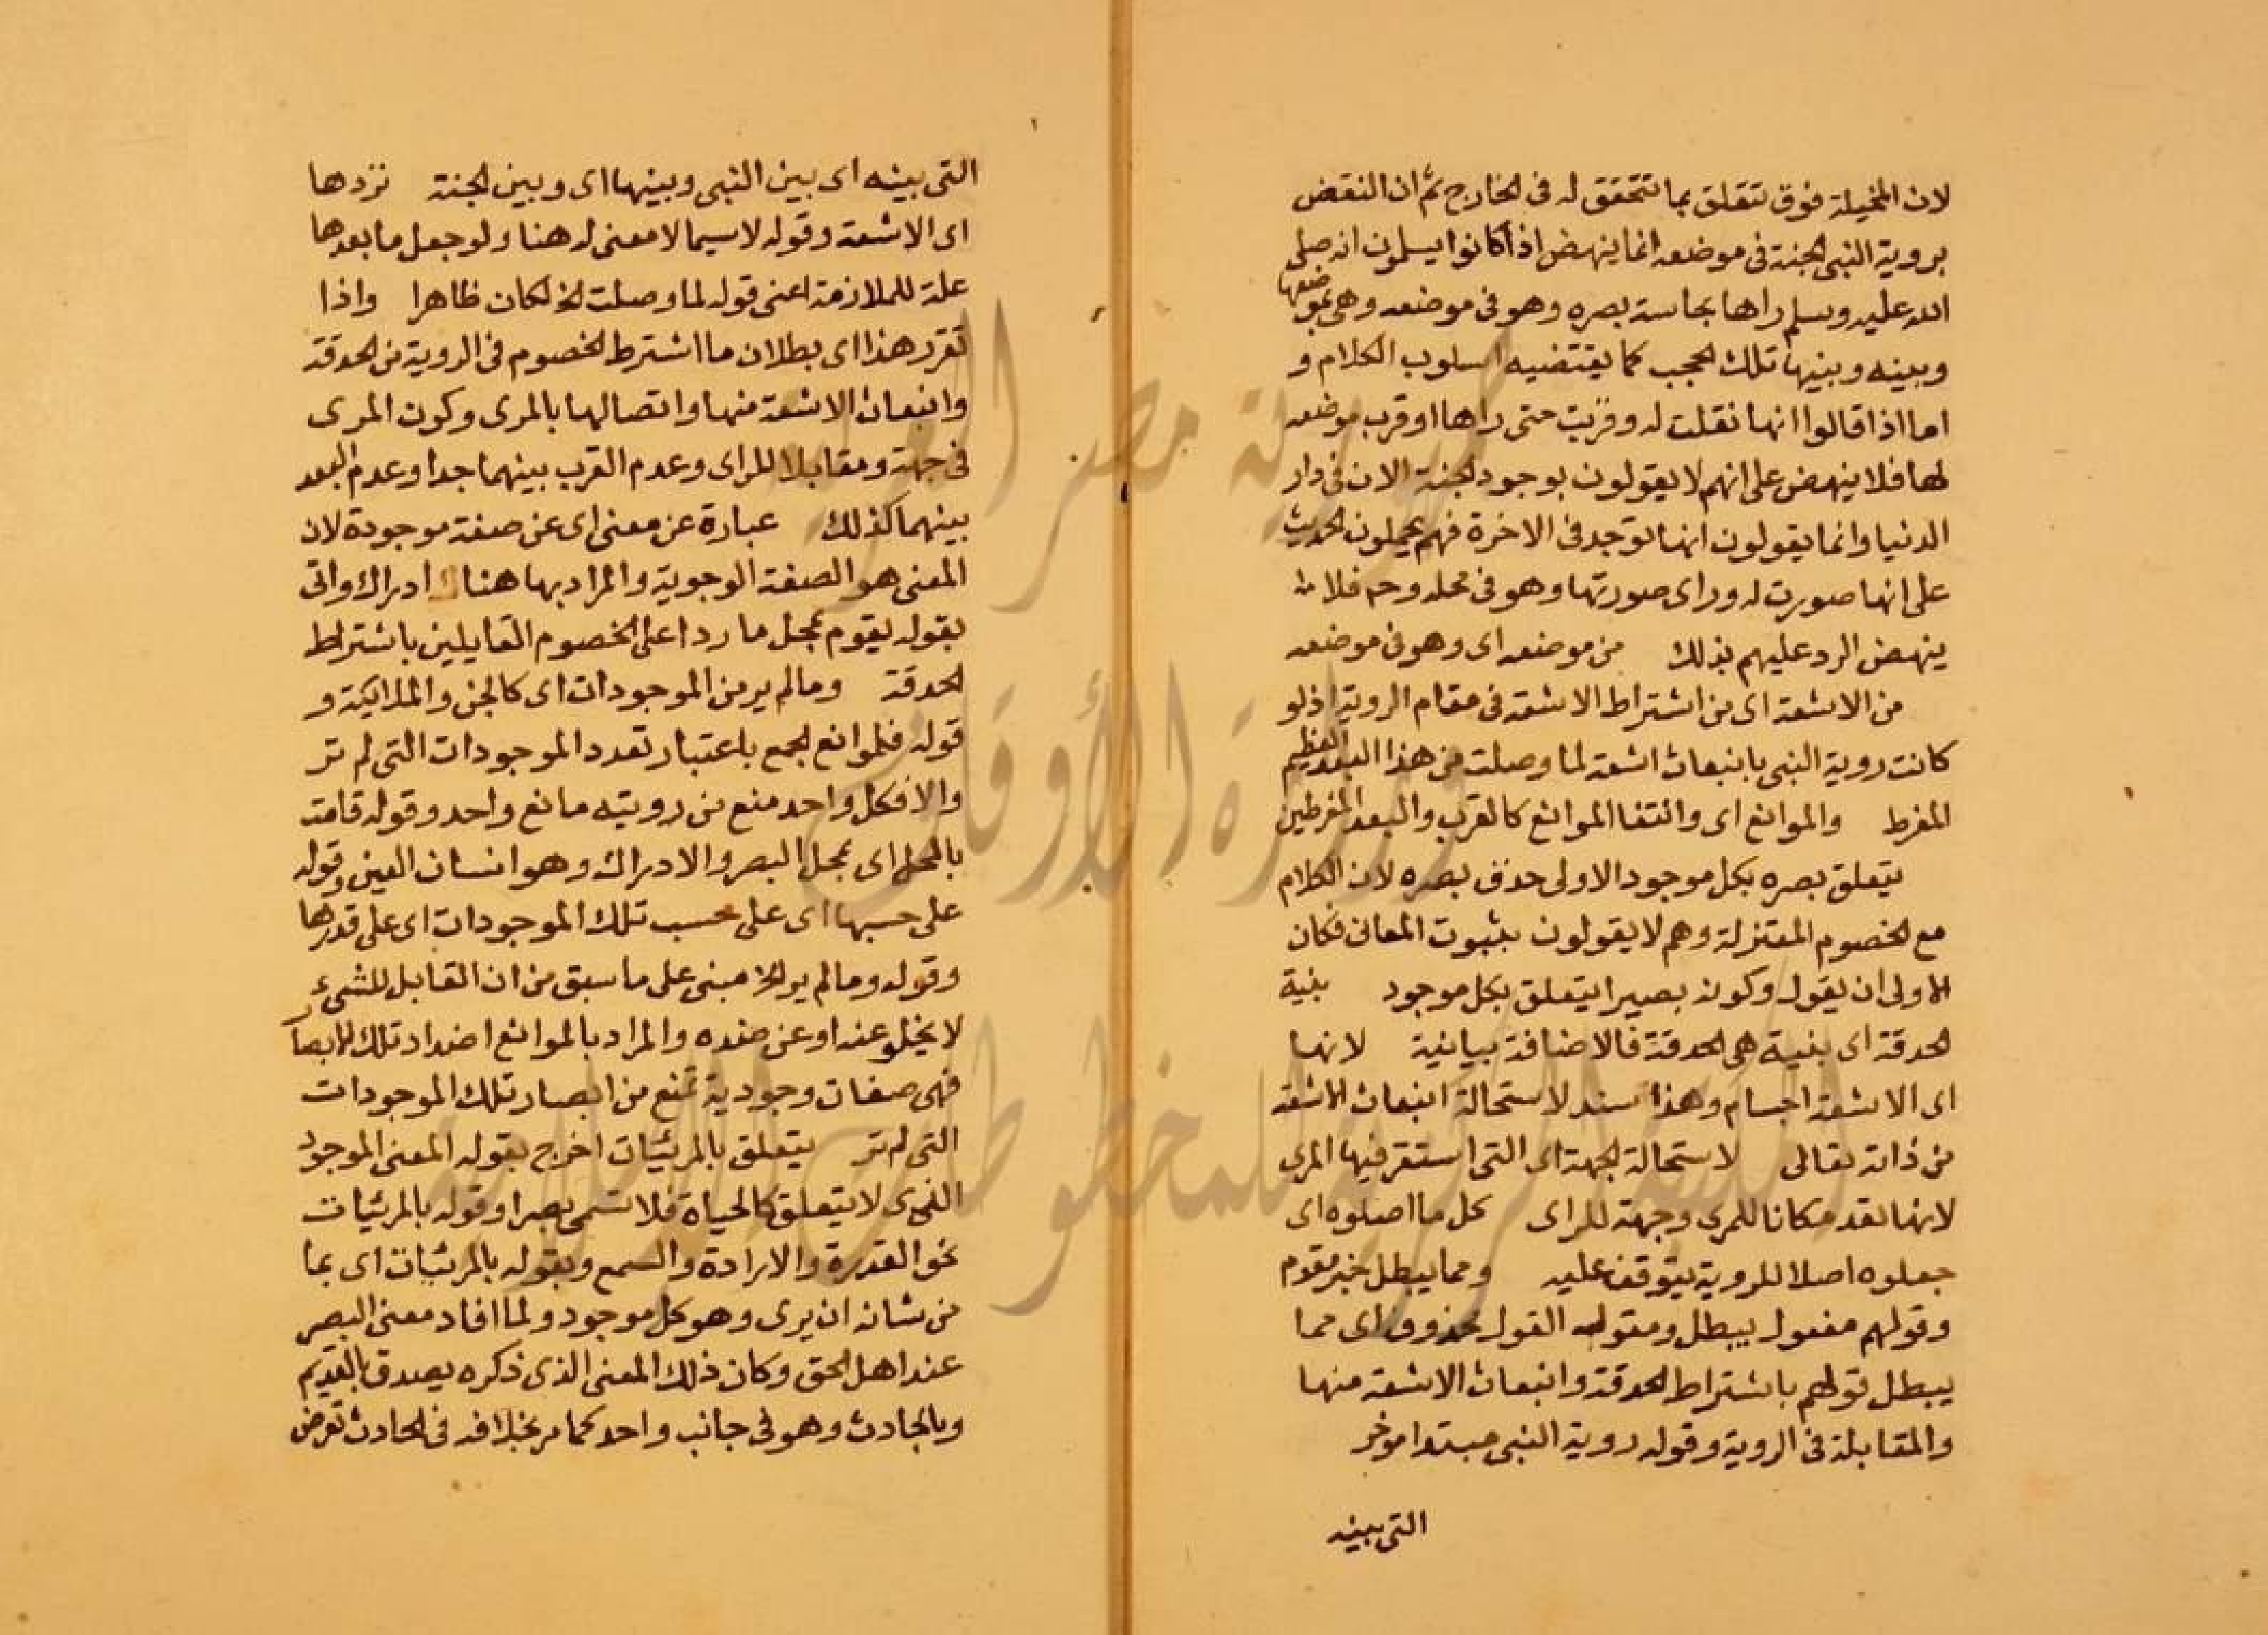 لان المخيلة فوق تتعلق بما تتحقق له فى الخارج ثم ان النقض
بروية النبى الجنة فى موضعه انما ينهض اذا كانوا يسلمون انه صلى
الله عليه وسلم راها بحاسة بصره وهو فى موضعه وهى بموضعها
وبينه وبينها تلك الحجب كما يقتضيه اسلوب الكلام و
اما اذا قالوا انها نقلت له وقربت حتى راها او قرب موضعه
لها فلا ينهض على انهم لا يقولون بوجود الجنة الان فى دار
الدنيا وانما يقولون انها توجد فى الاخرة فهم يحملون الحديث
على انها صورت له وراى صورتها وهو فى محله وح فلا
ينهض الرد عليهم بذلك من موضعه اى وهو فى موضعه
من الاشعة اى من اشتراط الاشعة فى مقام الروية اذ لو
كانت روية النبى بانبعاث اشعة لما وصلت من هذا البعد العظيم
المفرط والموانع اى وانتفا الموانع كالقرب والبعد المفرطين
يتعلق بصره بكل موجود الاولى حذف بصره لان الكلام
مع الخصوم المعتزلة وهم لا يقولون بثبوت المعانى فكان
الاولى ان يقول وكونه بصيرا يتعلق بكل موجود بنية
الحدقة اى بنية هى الحدقة فالاضافة بيانية لانها
اى الاشعة اجسام وهذا سند لاستحالة انبعاث الاشعة
من ذاته تعالى لاستحالة الجهة اى التى استقر فيها المرى
لانها تعد مكانا للمرى وجهة للراى كل ما اصلوه اى
جعلوه اصلا للروية يتوقف عليه ومما يبطل خبر مقدم
وقولهم مفعول يبطل ومقول القول محذوف اى مما
يبطل قولهم باشتراط الحدقة وانبعاث الاشعة منها
والمقابلة فى الروية وقوله روية النبى مبتدا موخر
التى بينه
التى بينه اى بين النبى وبينها اى وبين الجنة نزدها
اى الاشعة وقوله لاسيما لا معنى له هنا ولو جعل ما بعدها
علة للملازمة اعنى قوله لما وصلت الخ لكان ظاهرا واذا
تقرر هذا اى بطلان ما اشترط الخصوم فى الروية من الحدقة
وانبعاث الاشعة منها واتصالها بالمرى وكون المرى
فى جهة ومقابلا للراى وعدم القرب بينهما جدا وعدم البعد
بينهما كذلك عبارة عن معنى اى عن صفة موجودة لان
المعنى هو الصفة الوجوية والمراد بها هنا ادراك واتى
بقوله يقوم بمحل ما ردا على الخصوم القايلين باشتراط
الحدقة وما لم ير من الموجودات اى كالجن والملايكة و
قوله فلموانع الجمع باعتبار تعدد الموجودات التى لم تر
والا فكل واحد منع من رويته مانع واحد وقوله قامت
بالمحل اى بمحل البصر والادراك وهو انسان العين وقوله
على حسبها اى على حسب تلك الموجودات اى على قدرها
وقوله وما لم ير الخ مبنى على ما سبق من ان القابل للشىء
لا يخلو عنه او عن ضده والمراد بالموانع اضداد تلك الابصار
فهى صفات وجودية تمنع من ابصار تلك الموجودات
التى لم تر يتعلق بالمرئيات اخرج بقوله المعنى الموجود
الذى لا يتعلق كالحياة فلا تسمى بصرا وقوله بالمرئيات
نحو القدرة والارادة والسمع وبقوله بالمرئيات اى بما
من شانه ان يرى وهو كل موجود ولما افاد معنى البصر
عند اهل الحق وكان ذلك المعنى الذى ذكره يصدق بالقديم
وبالحادث وهو فى جانب واحد كما مر بخلافه فى الحادث تعرض